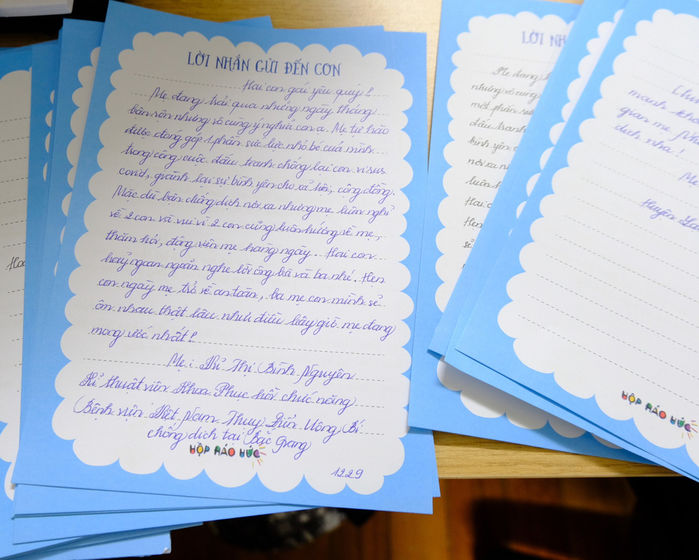 LỜI NHẮN GỬI ĐẾN CON
Hai con gái yêu quý!
Mẹ đang trải qua những ngày tháng
bận rộn nhưng vô cùng ý nghĩa con ạ. Mẹ tự hào
được đóng góp 1 phần sức lực nhỏ bé của mình
trong công cuộc đấu tranh chống lại con virus
covid, giành lại sự bình yên cho xã hội, cộng đồng.
Mặc dù bận chống dịch nơi xa nhưng mẹ luôn nghĩ
về 2 con và vui vì 2 con cũng luôn hướng về mẹ,
thăm hỏi, động viên mẹ hàng ngày. Hai con
hãy ngoan ngoãn nghe lời ông bà và ba nhé. Hẹn
con ngày mẹ trở về an toàn, ba mẹ con mình sẽ
ôm nhau thật lâu như điều bây giờ mẹ đang
mong ước nhất!
Mẹ: Thị Bình Nguyên
Kĩ thuật viên Khoa Phục hồi chức năng
Bệnh viện Việt Nam Thụy Điển Uông Bí
chống dịch tại Bắc Giang
HỘP HÁO HỨC
1229
LỜI NH
Mẹ đang
những vô cùng
một phần sức
đấu tranh
bình yên
nơi xa n
luôn h
Hai c
mạnh khỏe
gian mẹ
dịch nhé!
Mẹ
Huyền
HỘP HÁO HỨC